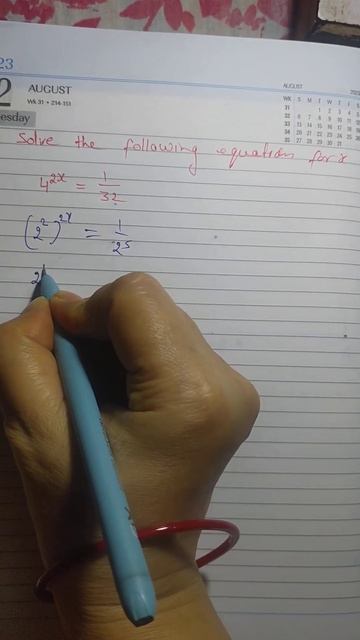 23
2 AUGUST
Wk 31 • 214-151
esday
AUGUST
WK S M T W T F S
31 1 2 3 4 5
32 6 7 8 9 10 11 12
33 13 14 15 16 17 18 19
34 20 21 22 23 24 25 26
35 27 28 29 30 31
Solve the following equation for x
4^{2x} = \frac{1}{32}
(2^2)^{2x} = \frac{1}{2^5}
2